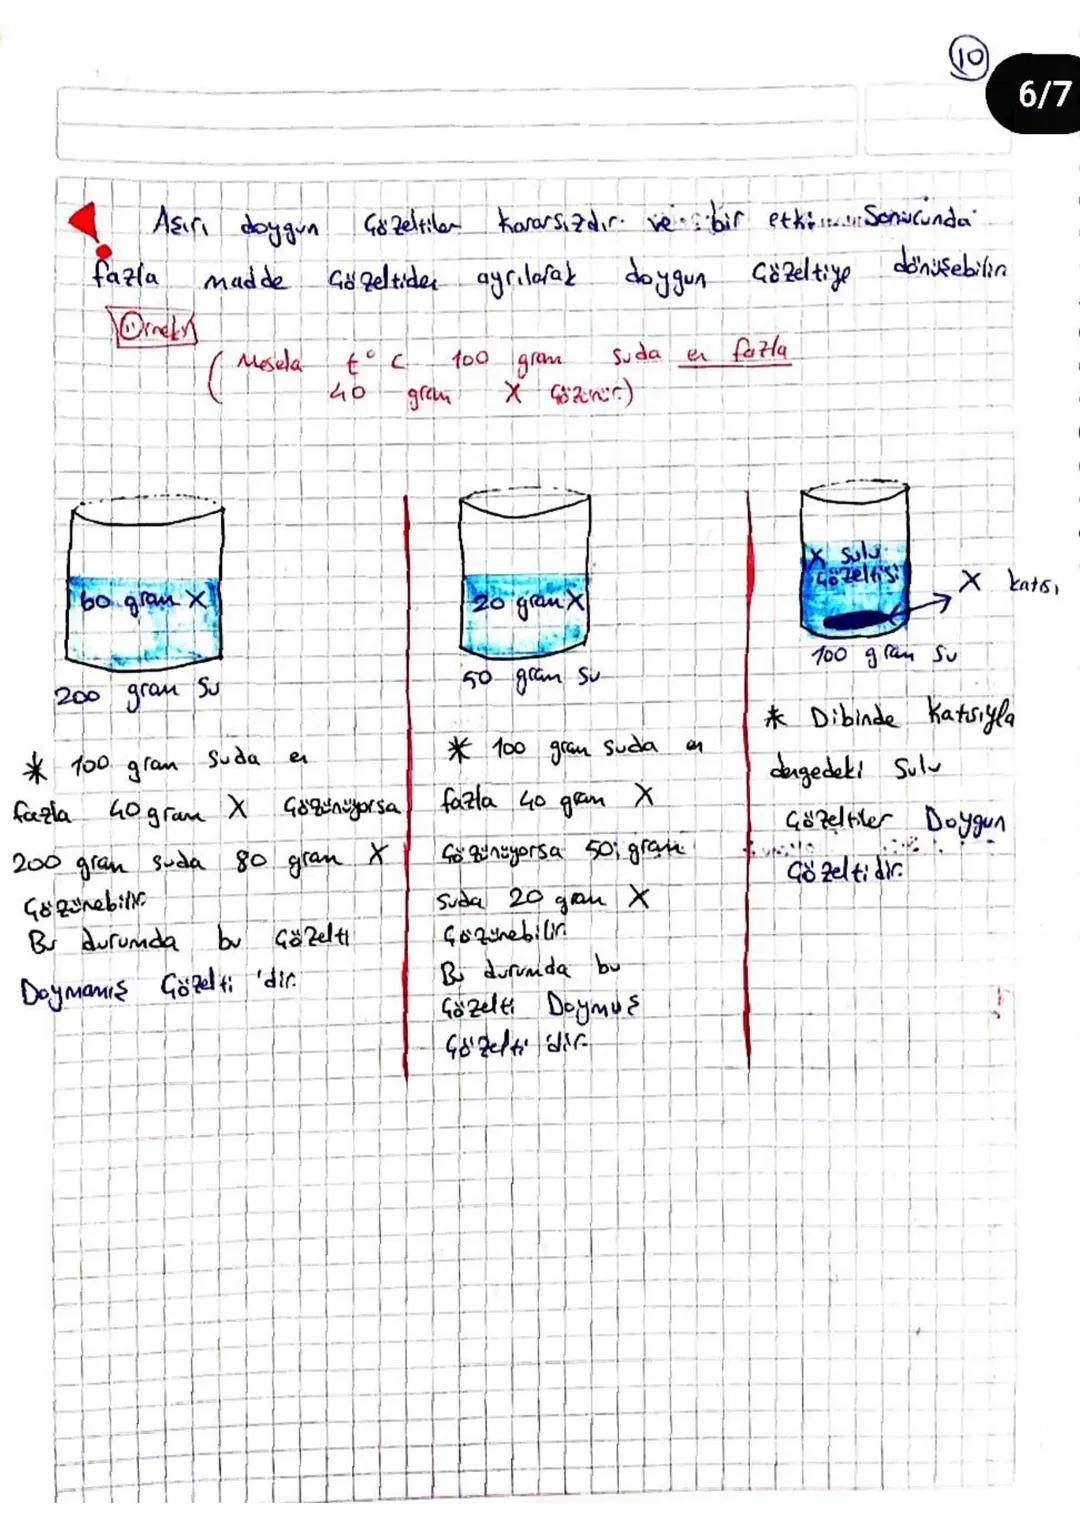 10
6/7
Aşırı doygun Çözeltiler kararsızdır. ve bir etki Sonucunda
fazla madde Çözeltiden ayrılarak doygun Çözeltiye dönüşebilir
Örnek
( Mesela t° C 100 gram suda en fazla
40 gram X Çözünür.)
60 gram X
200 gram Su
* 100 gram Suda en
fazla 40 gram X Çözünüyorsa
200 gram suda 80 gram X
Çözünebilir.
Bu durumda bu Çözelti
Doymamış Çözelti 'dir.
20 gram X
50 gram Su
* 100 gram suda en
fazla 40 gram X
Çözünüyorsa 50 gram
suda 20 gram X
Çözünebilir.
Bu durumda bu
Çözelti Doymuş
Çözelti 'dir.
X Sulu
Çözeltisi
X katısı
100 gram Su
* Dibinde Katısıyla
dengedeki Sulu
Çözeltiler Doygun
Çözeltidir.